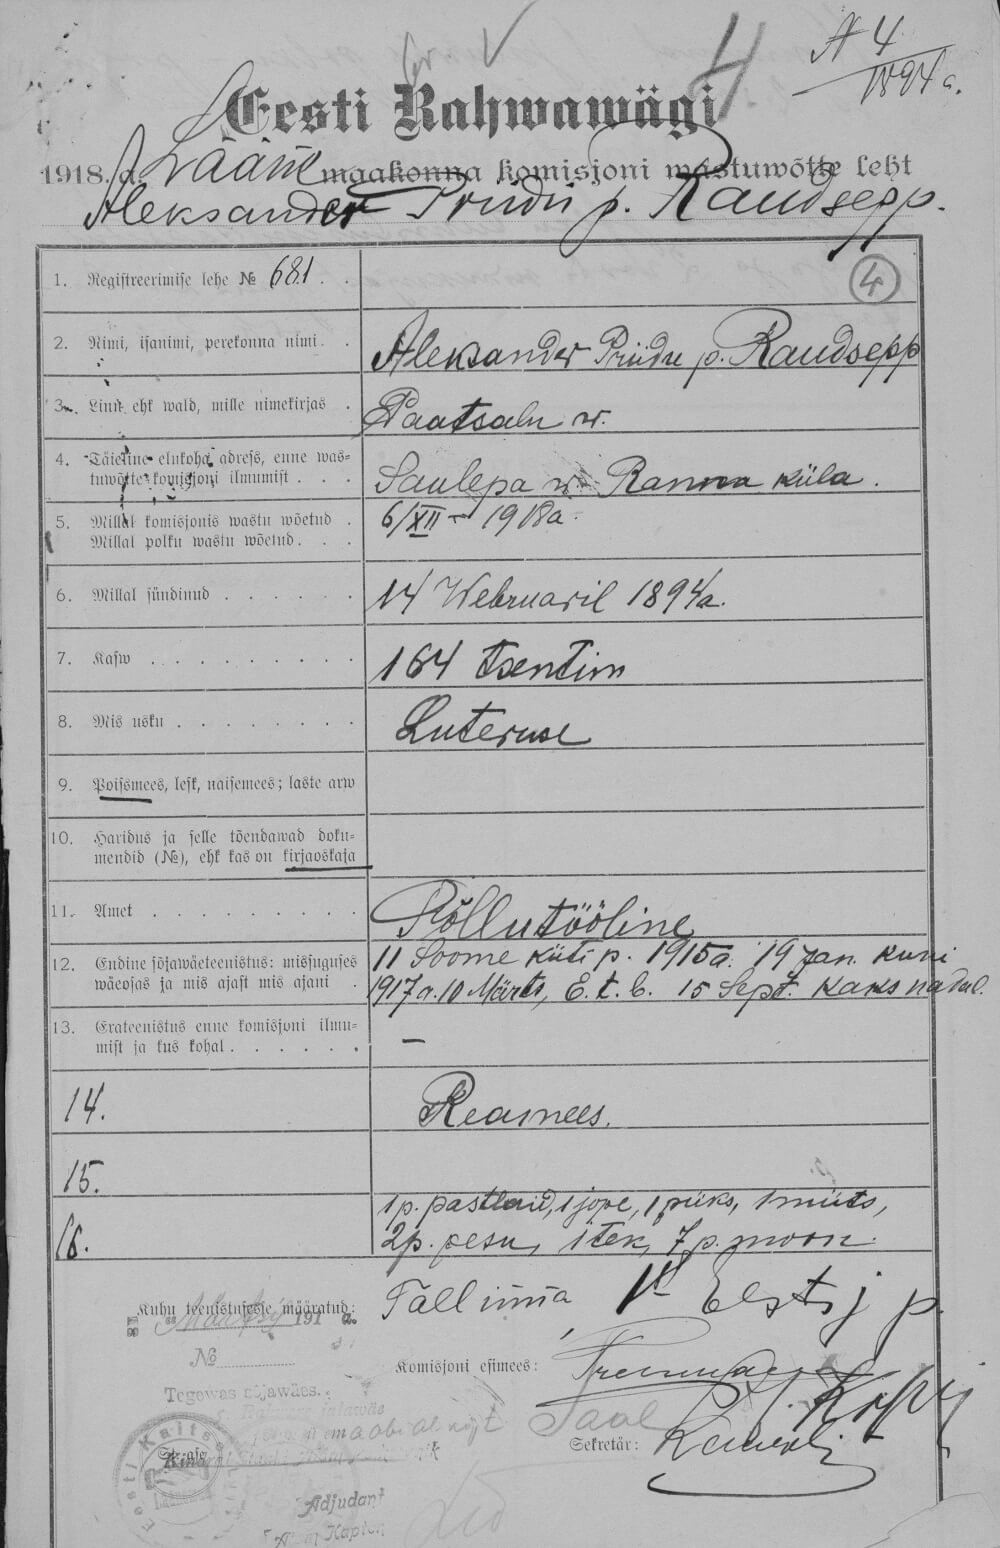 № 4
1894 a.
4
Eesti Rahwawägi
1918. a. Lääne maakonna komisjoni wastuwõtte leht
Aleksander Priidu p. Raudsepp.
1. Registreerimise lehe № 681. .
4
2. Nimi, isanimi, perekonna nimi. . Aleksander Priidu p. Raudsepp
3. Linn ehk wald, mille nimekirjas . Paatsalu w.
4. Täieline elukoha adress, enne was-
tuwõtte komisjoni ilmumist . . . Saulepa w. Ranna küla.
5. Millal komisjonis wastu wõetud . 6/XII – 1918a.
Millal polku wastu wõetud. . .
6. Millal sündinud . . . . . . 14 Webruaril 1894a.
7. Kasw . . . . . . . . . 164 tsentim
8. Mis usku . . . . . . . . Luteruse
9. Poissmees, lesk, naisemees; laste arw
10. Haridus ja selle tõendawad doku-
mendid (№), ehk kas on kirjaoskaja
11. Amet . . . . . . . . . Põllutööline
12. Endine sõjawäeteenistus: missuguses 11 Soome küti p. 1915a. 19 Jan. kuni
wäeosas ja mis ajast mis ajani . 1917 a. 10 Märts, E. t. b. 15 Sept. kaks nädal.
13. Erateenistus enne komisjoni ilmu-
mist ja kus kohal . . . . . . –
14. Reamees.
15.
1 p. pastlaid, 1 jope, 1 püks, 1 müts,
16. 2 p. pesu, 1 tek, 7 p. moon.
Kuhu teenistusesse määratud: Tallinna, 1 Eesti j p.
191 a.
№
Komisjoni esimees:
Tegewas sõjawäes.
Sekretär:
Eesti Kaitse
Adjudant
Kapten